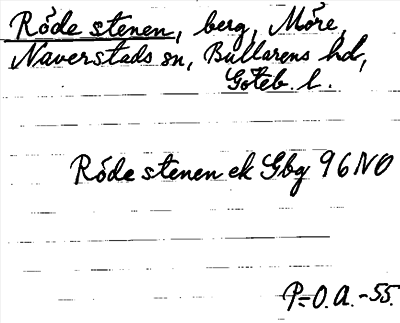 Röde stenen, berg, Möre,
Naverstads sn, Bullarens hd,
Göteb. l.
Röde stenen ek Gbg 96 NO
P=O.A.-55.